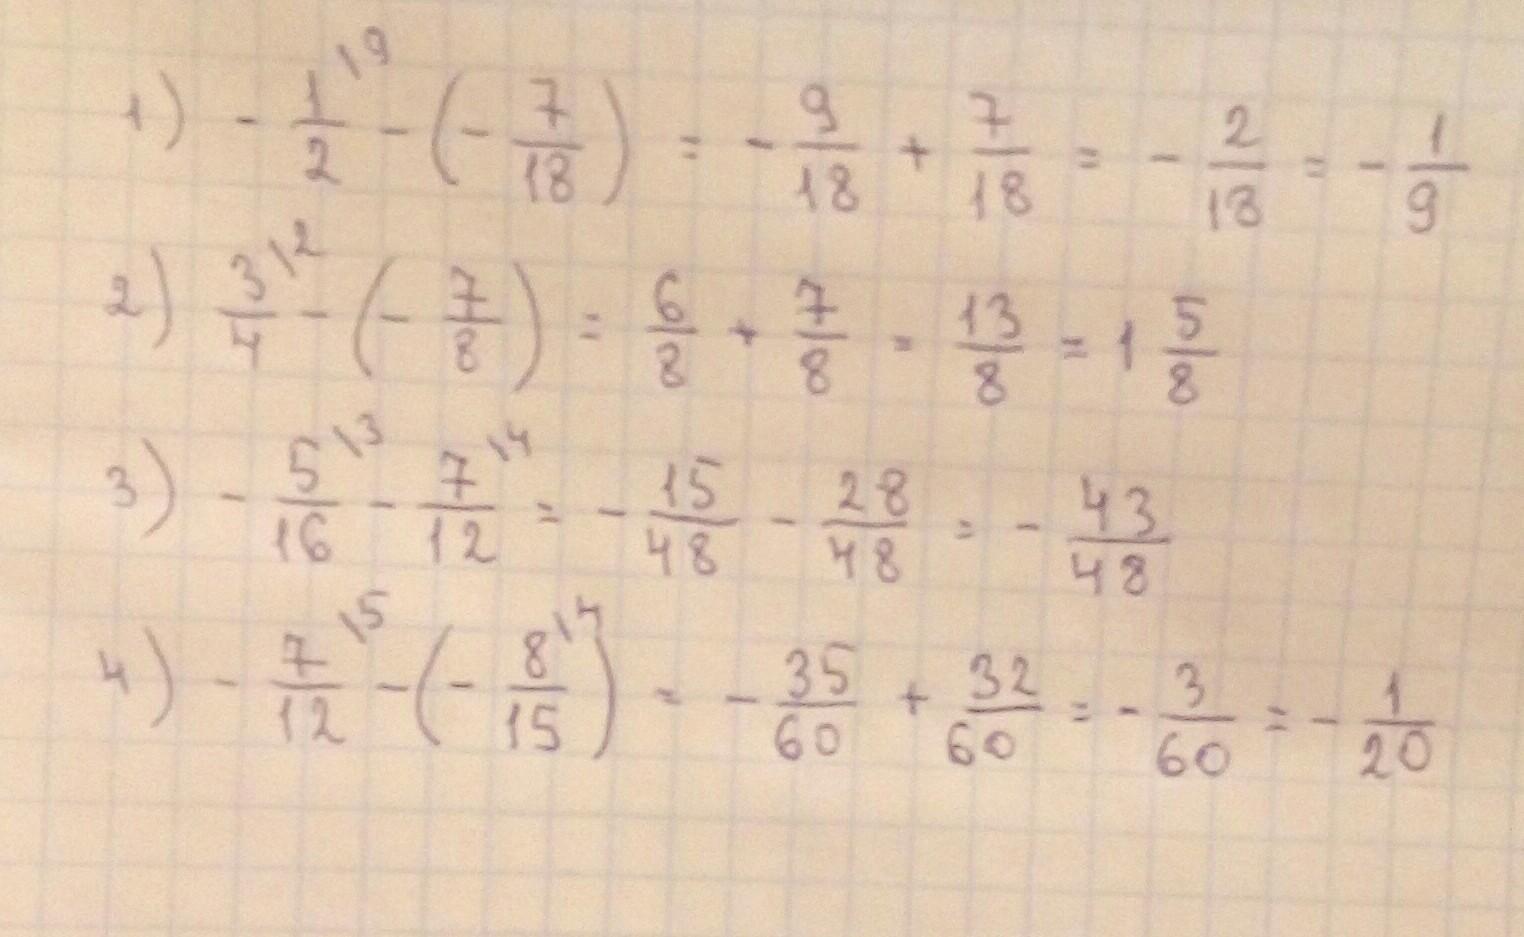 1) - 1/2 \9 - (- 7/18) = - 9/18 + 7/18 = - 2/18 = - 1/9
2) 3/4 \2 - (- 7/8) = 6/8 + 7/8 = 13/8 = 1 5/8
3) - 5/16 \3 - 7/12 \4 = - 15/48 - 28/48 = - 43/48
4) - 7/12 \5 - (- 8/15 \4) = - 35/60 + 32/60 = - 3/60 = - 1/20